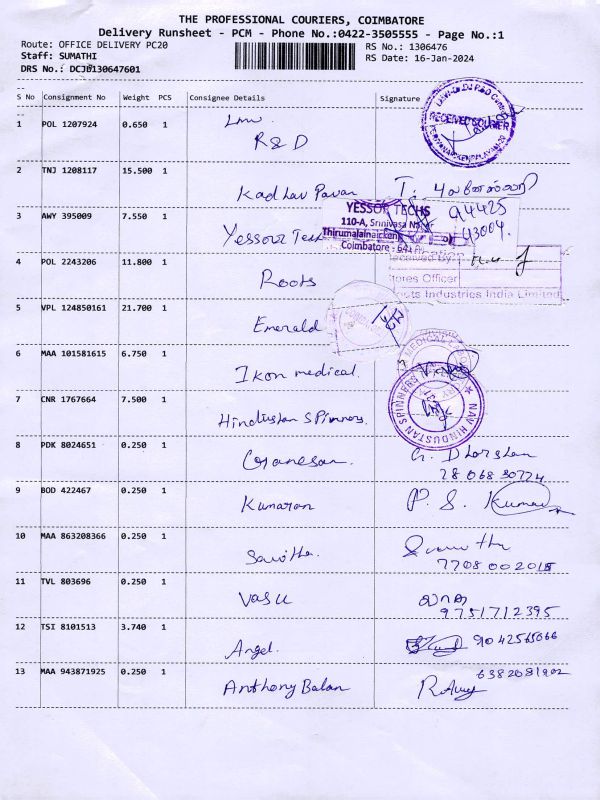 THE PROFESSIONAL COURIERS, COIMBATORE
Delivery Runsheet - PCM - Phone No.:0422-3505555 - Page No.:1
Route: OFFICE DELIVERY PC20
RS No.: 1306476
Staff: SUMATHI
RS Date: 16-Jan-2024
DRS No.: DCJB130647601
S No Consignment No Weight PCS Consignee Details Signature
1 POL 1207924 0.650 1 Lmw R&D
RECEIVED
2 TNJ 1208117 15.500 1 Kadhav Pavan
3 AWY 395009 7.550 1 Yessour Tech
YESSOR TECHS
110-A, Srinivasa N
Thirumalainaicken
Coimbatore - 641
94425
43004
4 POL 2243206 11.800 1 Roots
Received By
Stores Officer
Roots Industries India Limited
5 VPL 124850161 21.700 1 Emerald
6 MAA 101581615 6.750 1 Ikon medical
MEDICAL
7 CNR 1767664 7.500 1 Hindustan Spinners
NAV HINDUSTAN SPINNERS
8 PDK 8024651 0.250 1 Ganesan G. Dharshan
28 068 30774
9 BOD 422467 0.250 1 Kumaran P. S. Kumar
10 MAA 863208366 0.250 1 Savitha
7708 002015
11 TVL 803696 0.250 1 Vasu வாசு
9751712395
12 TSI 8101513 3.740 1 Angel 9042565066
13 MAA 943871925 0.250 1 Anthony Balan
6382081902